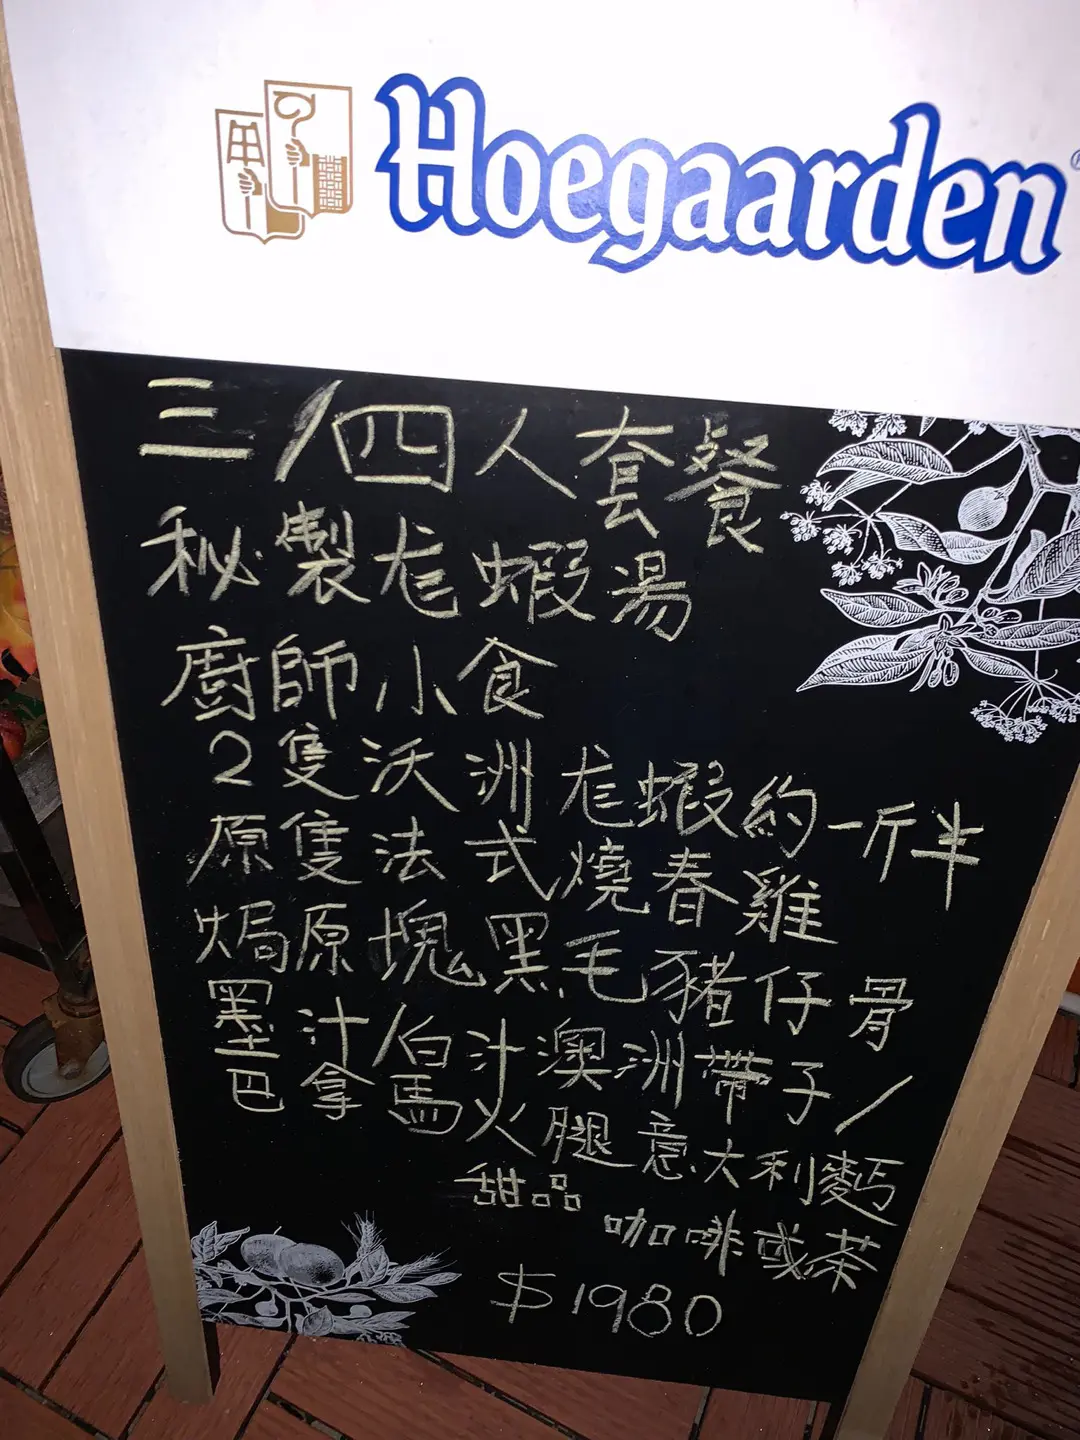 Hoegaarden
三/四人套餐
秘製尨蝦湯
廚師小食
2隻沃洲尨蝦約一斤半
原隻法式燒春雞
焗原塊黑毛豬仔骨
墨汁/白汁澳洲帶子/
巴拿馬火腿意大利麵
甜品
咖啡或茶
$1980